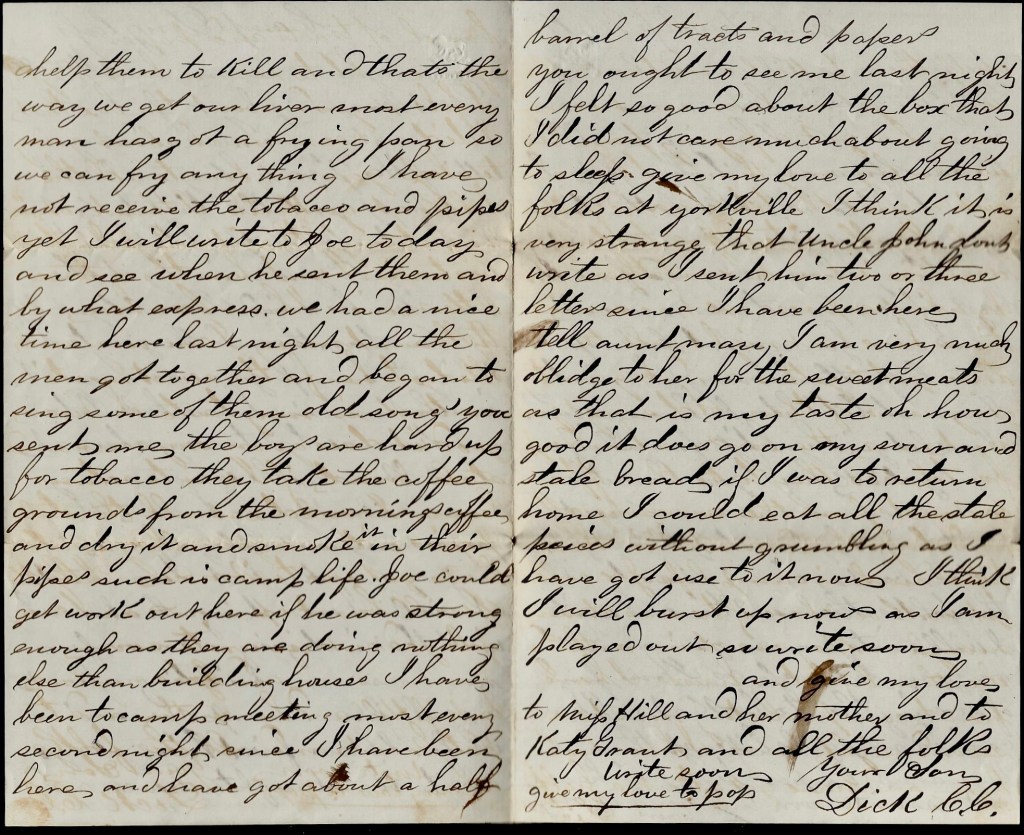 help them to kill and thats the
way we get our liver most every
man has got a frying pan so
we can fry any thing I have
not receive the tobacco and pipes
yet I will write to Joe to day
and see when he sent them and
by what express. we had a nice
time here last night all the
men got together and began to
sing some of them old songs you
sent me the boys are hard up
for tobacco they take the coffee
grounds from the mornings coffee
and dry it and smoke it in their
pipes such is camp life. Joe could
get work out here if he was strong
enough as they are doing nothing
else than building houses I have
been to camp meeting most every
second night since I have been
here and have got about a half
barrel of tracts and papers
you ought to see me last night
I felt so good about the box that
I did not care much about going
to sleep. give my love to all the
folks at yorkville I think it is
very strange that Uncle John dont
write as I sent him two or three
letters since I have been here
tell aunt mary I am very much
oblidge to her for the sweetmeats
as that is my taste oh how
good it does go on my sour and
stale bread if I was to return
home I could eat all the stale
peices without grumbling as I
have got use to it now I think
I will burst up now as I am
played out so write soon
and give my love
to Miss Hill and her mother and to
Katy Grant and all the folks
write soon Your Son
give my love to pop Dick C.C.